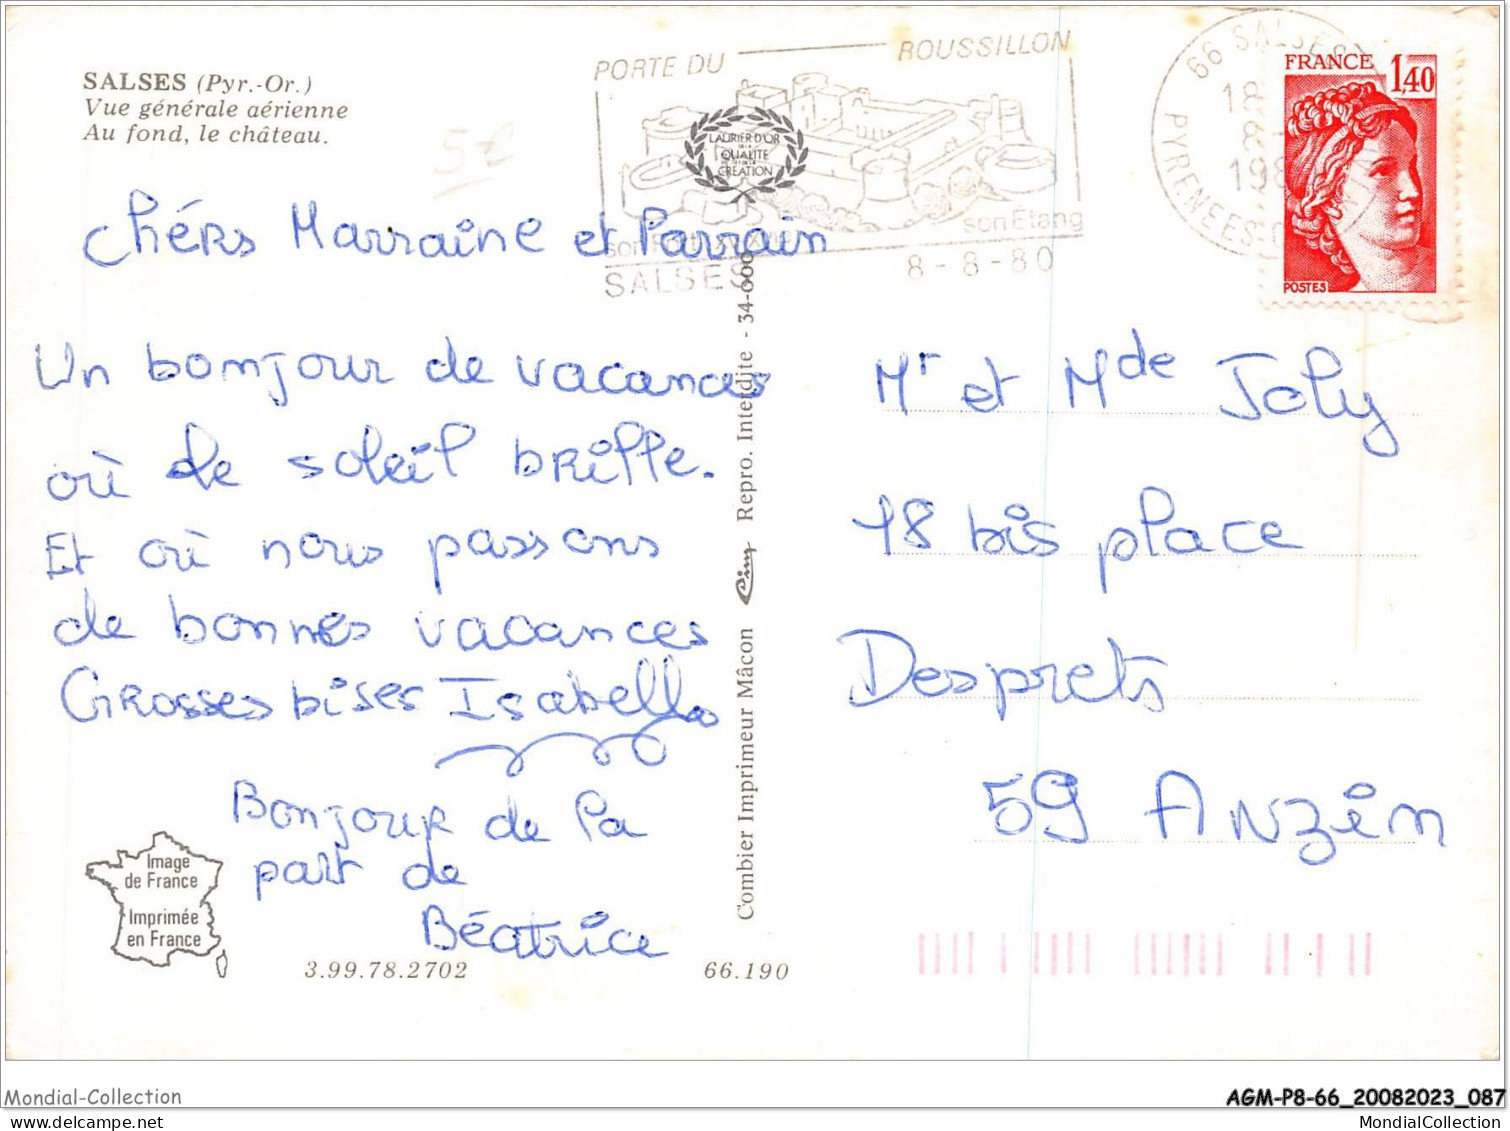 SALSES (Pyr.-Or.)
Vue générale aérienne
Au fond, le château.
5€
PORTE DU ROUSSILLON
LAURIER D'OR
DE LA
QUALITE
ET DE LA
CREATION
son Etang
SALSES
8-8-80
66 SALSES
PYRENEES
18
8-
198
FRANCE 1,40
POSTES
Chérs Marraine et Parrain
Un bonjour de vacances
où le soleil brille.
Et où nous passons
de bonnes vacances
Grosses bises Isabelle
Bonjour de la
part de
Béatrice
Image
de France
Imprimée
en France
3.99.78.2702
66.190
Combier Imprimeur Mâcon Cim Repro. Interdite - 34-000
Mr et Mde Joly
18 bis place
Desprets
59 Anzin
Mondial-Collection
AGM-P8-66_20082023_087
MondialCollection